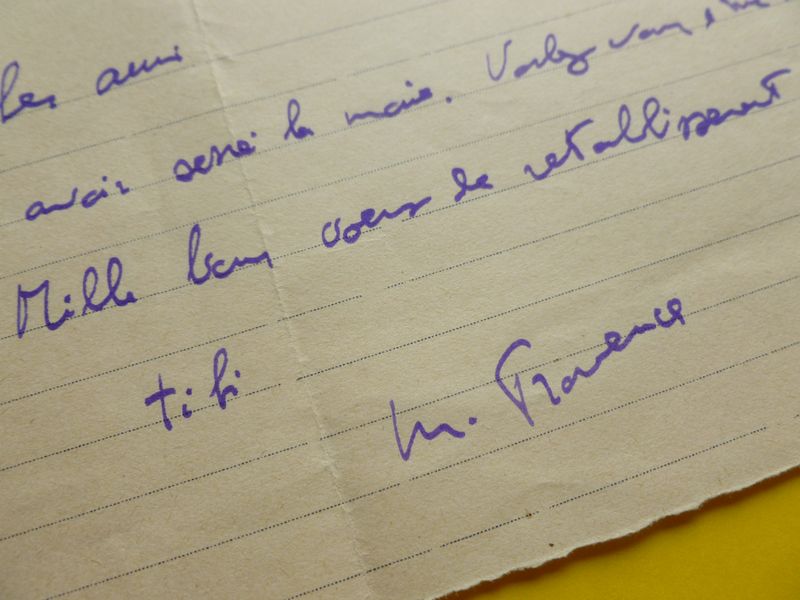 les amis
avoir serré la main. Voulez vous
Mille bons voeux de rétablissement
tibi
M. Provence